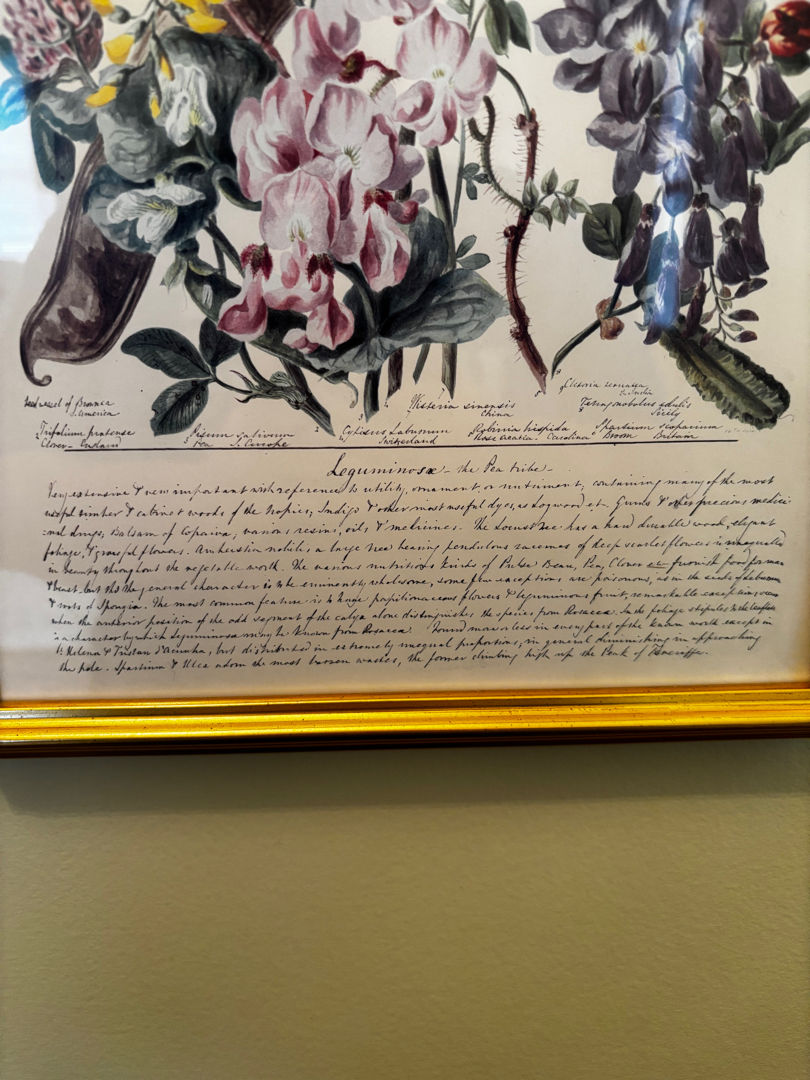 Seed vessel of
S. America
Trifolium pratense
Clover - England
Pisum sativum
Pea S. Europe
3
Cytisus Laburnum
Switzerland
4
Wisteria sinensis
China
Robinia hispida
Rose acacia. Carolina
ternatea
E. India
Tetragonolobus edulis
Sicily
Spartium scoparium
Broom Britain
Leguminosæ - the Pea tribe -
Very extensive & very important with reference to utility, ornament, or nutriment; containing many of the most
useful timber & cabinet woods of the tropics, Indigo & other most useful dyes, as Logwood etc. Gums & other precious medici
:nal drugs, Balsam of Copaiva, various resins, oils, & medicines. The Locust tree has a hard durable wood, elegant
foliage, & graceful flowers. Amherstia nobilis, a large tree bearing pendulous racemes of deep scarlet flowers is unequalled
in beauty throughout the vegetable world. The various nutritious kinds of Pulse Bean, Pea, Clover etc furnish food for man
& beast, but tho' the general character is to be eminently wholesome, some few exceptions are poisonous, as in the seeds of laburnum
& roots of The most common feature is to have papilionaceous flowers & leguminous fruit, remarkable exceptions occur
when the anterior position of the odd segment of the calyx alone distinguishes the species from Rosaceæ. In the foliage stipules to the leaflets
is a character by which Leguminosæ may be known from Rosaceæ. Found more or less in every part of the known world except in
St Helena & Tristan d'Acunha, but distributed in extremely unequal proportions, in general diminishing in approaching
the pole. Spartium & Ulex adorn the most barren wastes, the former climbing high up the Peak of Teneriffe.